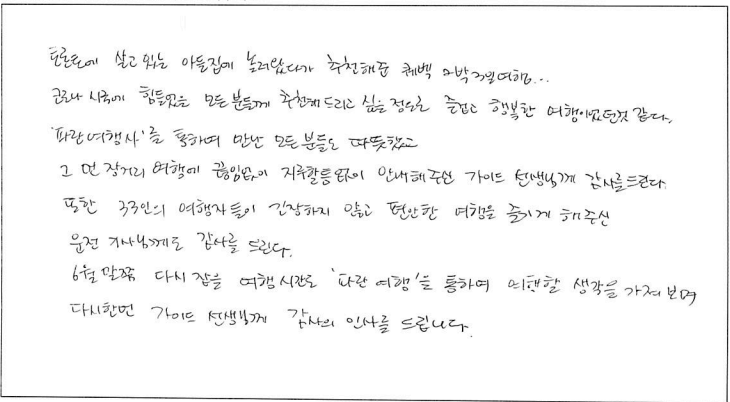 토론토에 살고 있는 아들집에 놀러왔다가 추천해준 퀘벡 2박 3일 여행...
코로나 시국에 힘들었을 모든 분들께 추천해 드리고 싶을 정도로 즐겁고 행복한 여행이었던것 같다.
'파란여행사'를 통하여 만난 모든분들도 따뜻했고
그 먼 장거리 여행에 끊임없이 지루할틈 없이 안내해주신 가이드 선생님께 감사를 드린다.
또한 33인의 여행자들이 긴장하지 않고 편안한 여행을 즐기게 해주신
운전 기사님께도 감사를 드린다.
6월 말쯤 다시 잡을 여행 시간도 '파란 여행'을 통하여 여행할 생각을 가져 보며
다시한번 가이드 선생님께 감사의 인사를 드립니다.